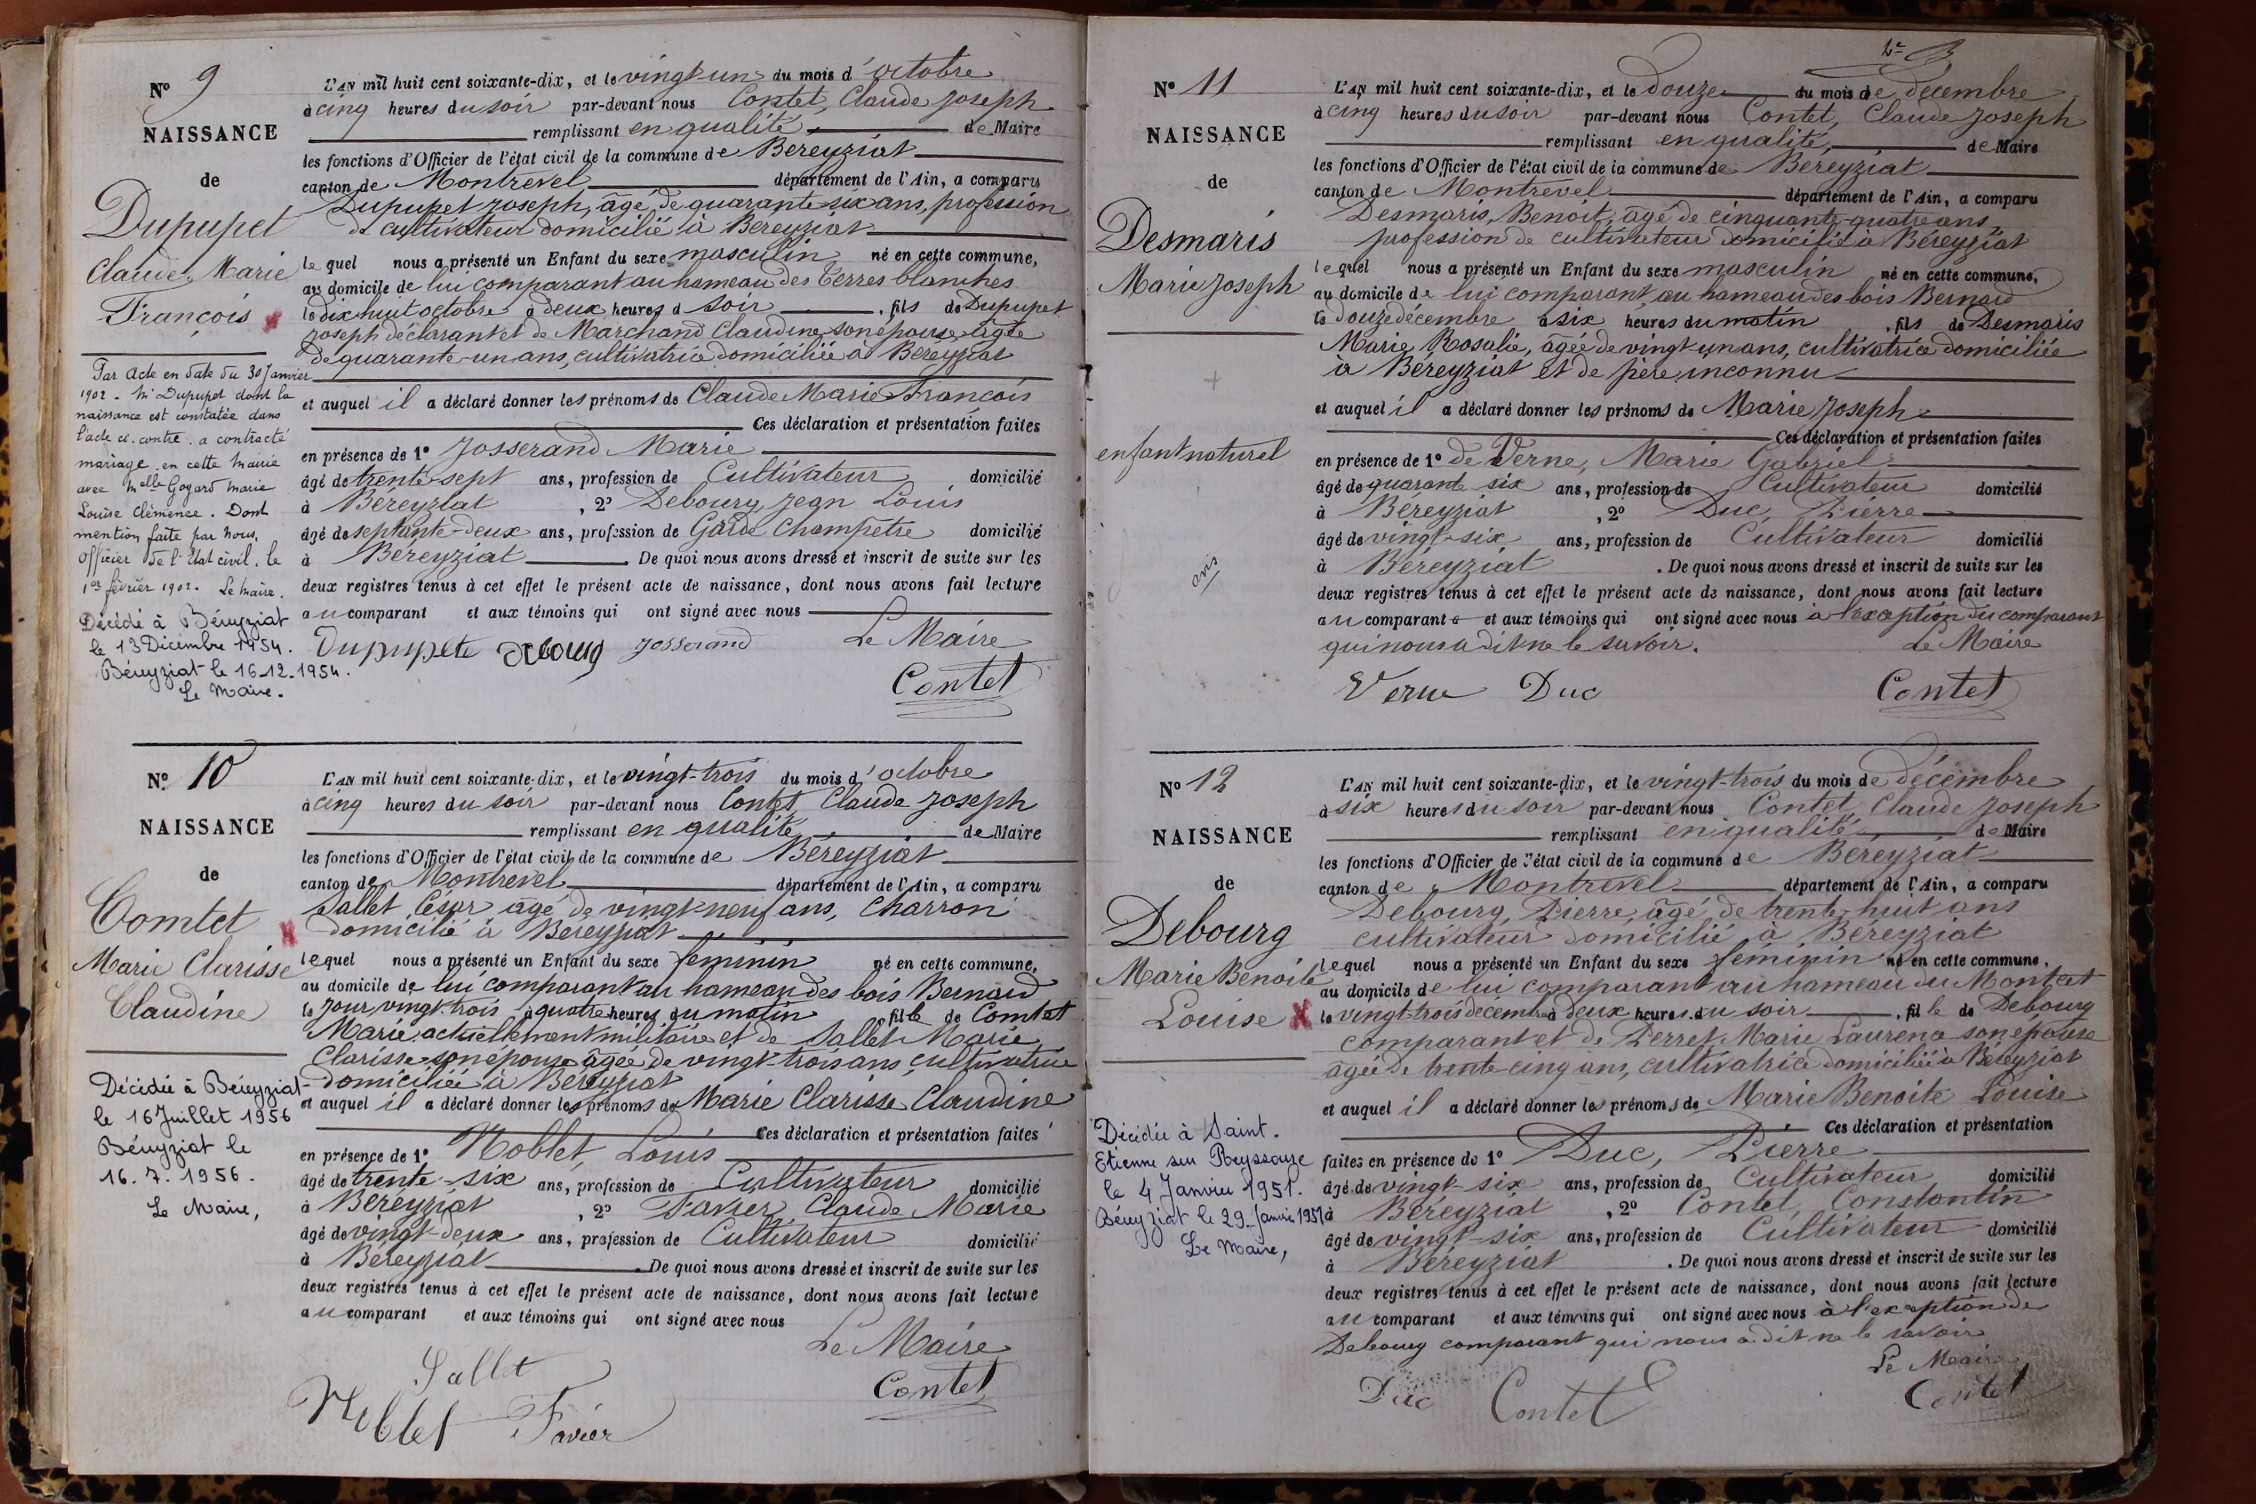 Nº 9
NAISSANCE
de
Dupupet
Claude Marie
François
Par acte en date du 30 Janvier
1902 - Mr Dupupet dont la
naissance est constatée dans
l'acte ci-contre a contracté
mariage en cette Mairie
avec Melle Gogard Marie
Louise Clémence. Dont
mention faite par nous,
officier de l'Etat civil, le
1er février 1902. Le Maire.
Décédé à Béreyziat
le 13 Décembre 1954.
Béreyziat le 16-12-1954.
Le Maire.
L'AN mil huit cent soixante-dix, et le vingt-un du mois d'octobre
à cinq heures du soir par-devant nous Contet, Claude Joseph
remplissant en qualité de Maire
les fonctions d'Officier de l'état civil de la commune de Bereyziat
canton de Montrevel département de l'Ain, a comparu
Dupupet Joseph, âgé de quarante-six ans, profession
de cultivateur domicilié à Bereyziat
lequel nous a présenté un Enfant du sexe masculin né en cette commune,
au domicile de lui comparant au hameau des Terres blanches
le dix huit octobre à deux heures d soir, fils de Dupupet
Joseph déclarant et de Marchand Claudine son épouse âgée
de quarante-un ans, cultivatrice domiciliée à Bereyziat
et auquel il a déclaré donner les prénoms de Claude Marie François
Ces déclaration et présentation faites
en présence de 1º Josserand Marie
âgé de trente-sept ans, profession de Cultivateur domicilié
à Bereyziat, 2º Debourg Jean Louis
âgé de septante-deux ans, profession de Garde Champetre domicilié
à Bereyziat. De quoi nous avons dressé et inscrit de suite sur les
deux registres tenus à cet effet le présent acte de naissance, dont nous avons fait lecture
au comparant et aux témoins qui ont signé avec nous
Dupupete Debourg Josserand Le Maire
Contet
Nº 10
NAISSANCE
de
Comtet
Marie Clarisse
Claudine
Décédée à Béreyziat
le 16 Juillet 1956
Béreyziat le
16.7.1956.
Le Maire,
L'AN mil huit cent soixante-dix, et le vingt-trois du mois d'octobre
à cinq heures du soir par-devant nous Contet, Claude Joseph
remplissant en qualité de Maire
les fonctions d'Officier de l'état civil de la commune de Béreyziat
canton de Montrevel département de l'Ain, a comparu
Sallet César âgé de vingt-neuf ans, Charron
domicilié à Béreyziat
lequel nous a présenté un Enfant du sexe féminin né en cette commune,
au domicile de lui comparant au hameau des bois Bernard
le jour vingt-trois à quatre heures du matin, fille de Comtet
Marie actuellement militaire et de Sallet Marie
Clarisse son épouse âgée de vingt-trois ans, cultivatrice
domiciliée à Béreyziat
et auquel il a déclaré donner les prénoms de Marie Clarisse Claudine
Ces déclaration et présentation faites
en présence de 1º Noblet, Louis
âgé de trente-six ans, profession de Cultivateur domicilié
à Béreyziat, 2º Favier Claude Marie
âgé de vingt-deux ans, profession de Cultivateur domicilié
à Béreyziat. De quoi nous avons dressé et inscrit de suite sur les
deux registres tenus à cet effet le présent acte de naissance, dont nous avons fait lecture
au comparant et aux témoins qui ont signé avec nous
Le Maire
Sallet
Contet
Noblet Favier
Nº 11
NAISSANCE
de
Desmaris
Marie Joseph
enfant naturel
L'AN mil huit cent soixante-dix, et le douze du mois de décembre
à cinq heures du soir par-devant nous Contet, Claude Joseph
remplissant en qualité de Maire
les fonctions d'Officier de l'état civil de la commune de Béreyziat
canton de Montrevel département de l'Ain, a comparu
Desmaris, Benoit, âgé de cinquante-quatre ans
profession de cultivateur domicilié à Béreyziat
lequel nous a présenté un Enfant du sexe masculin né en cette commune,
au domicile de lui comparant au hameau des bois Bernard
le douze décembre à six heures du matin, fils de Desmaris
Marie Rosalie, âgée de vingt-un ans, cultivatrice domiciliée
à Béreyziat et de père inconnu
et auquel il a déclaré donner les prénoms de Marie Joseph
Ces déclaration et présentation faites
en présence de 1º de Verne, Marie Gabriel
âgé de quarante six ans, profession de Cultivateur domicilié
à Béreyziat, 2º Duc, Pierre
âgé de vingt-six ans, profession de Cultivateur domicilié
à Béreyziat. De quoi nous avons dressé et inscrit de suite sur les
deux registres tenus à cet effet le présent acte de naissance, dont nous avons fait lecture
au comparant et aux témoins qui ont signé avec nous à l'exception du comparant
qui nous a dit ne le savoir. Le Maire
Verne Duc Contet
Nº 12
NAISSANCE
de
Debourg
Marie Benoite
Louise
Décédée à Saint-
Etienne sur Reyssouze
le 4 Janvier 1951.
Béreyziat le 29 Janvier 1951
Le Maire,
L'AN mil huit cent soixante-dix, et le vingt-trois du mois de décembre
à six heures du soir par-devant nous Contet, Claude Joseph
remplissant en qualité de Maire
les fonctions d'Officier de l'état civil de la commune de Béreyziat
canton de Montrevel département de l'Ain, a comparu
Debourg, Pierre, âgé de trente-huit ans
cultivateur domicilié à Béreyziat
lequel nous a présenté un Enfant du sexe féminin né en cette commune,
au domicile de lui comparant au hameau du Montcet
le vingt-trois décembre à deux heures du soir, fille de Debourg
comparant et de Perret Marie Laurence son épouse
âgée de trente-cinq ans, cultivatrice domiciliée à Béreyziat
et auquel il a déclaré donner les prénoms de Marie Benoite Louise
Ces déclaration et présentation
faites en présence de 1º Duc, Pierre
âgé de vingt-six ans, profession de Cultivateur domicilié
à Béreyziat, 2º Contet, Constantin
âgé de vingt-six ans, profession de Cultivateur domicilié
à Béreyziat. De quoi nous avons dressé et inscrit de suite sur les
deux registres tenus à cet effet le présent acte de naissance, dont nous avons fait lecture
au comparant et aux témoins qui ont signé avec nous à l'exception de
Debourg comparant qui nous a dit ne le savoir
Le Maire
Duc Contet C Contet